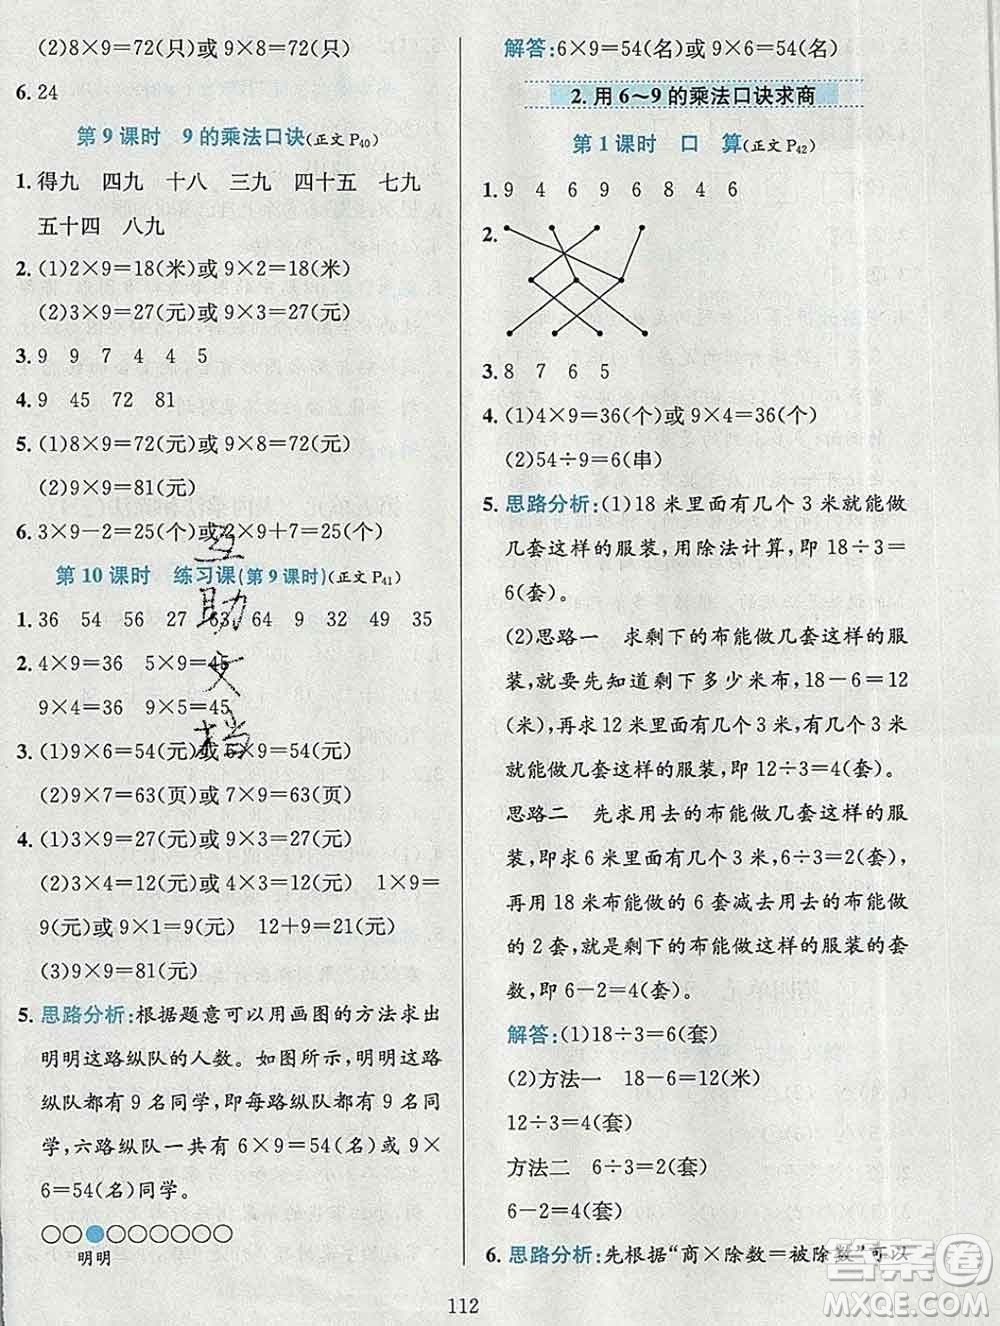 (2)8×9=72(只)或 9×8=72(只)
6. 24
第 9 课时　9 的乘法口诀(正文 P40)
1. 得九　四九　十八　三九　四十五　七九
五十四　八九
2. (1)2×9=18(米)或 9×2=18(米)
(2)3×9=27(元)或 9×3=27(元)
3. 9　9　7　4　4　5
4. 9　45　72　81
5. (1)8×9=72(元)或 9×8=72(元)
(2)9×9=81(元)
6. 3×9-2=25(个)或 2×9+7=25(个)
第 10 课时　练习课(第 9 课时)(正文 P41)
1. 36　54　56　27　63　64　9　32　49　35
2. 4×9=36　5×9=45
9×4=36　9×5=45
3. (1)9×6=54(元)或 6×9=54(元)
(2)9×7=63(页)或 7×9=63(页)
4. (1)3×9=27(元)或 9×3=27(元)
(2)3×4=12(元)或 4×3=12(元)　1×9=
9(元)或 9×1=9(元)　12+9=21(元)
(3)9×9=81(元)
5. 思路分析:根据题意可以用画图的方法求出
明明这路纵队的人数。如图所示,明明这路
纵队都有 9 名同学,即每路纵队都有 9 名同
学,六路纵队一共有 6×9=54(名)或 9×
6=54(名)同学。
明明
解答:6×9=54(名)或 9×6=54(名)
2. 用 6～9 的乘法口诀求商
第 1 课时　口　算(正文 P42)
1. 9　4　6　9　6　8　4　6
2.
3. 8　7　6　5
4. (1)4×9=36(个)或 9×4=36(个)
(2)54÷9=6(串)
5. 思路分析:(1)18 米里面有几个 3 米就能做
几套这样的服装,用除法计算,即 18÷3=
6(套)。
(2)思路一　求剩下的布能做几套这样的服
装,就要先知道剩下多少米布,18-6=12
(米),再求 12 米里面有几个 3 米,有几个 3
米就能做几套这样的服装,即 12÷3=4(套)。
思路二　先求用去的布能做几套这样的服
装,即求 6 米里面有几个 3 米,6÷3=2(套),
再用 18 米布能做的 6 套减去用去的布能做
的 2 套,就是剩下的布能做这样的服装的套
数,即 6-2=4(套)。
解答:(1)18÷3=6(套)
(2)方法一　18-6=12(米)
12÷3=4(套)
方法二　6÷3=2(套)
6-2=4(套)
6. 思路分析:先根据“商×除数=被除数”可以
112
互助文档
答案圈
MXQE.COM